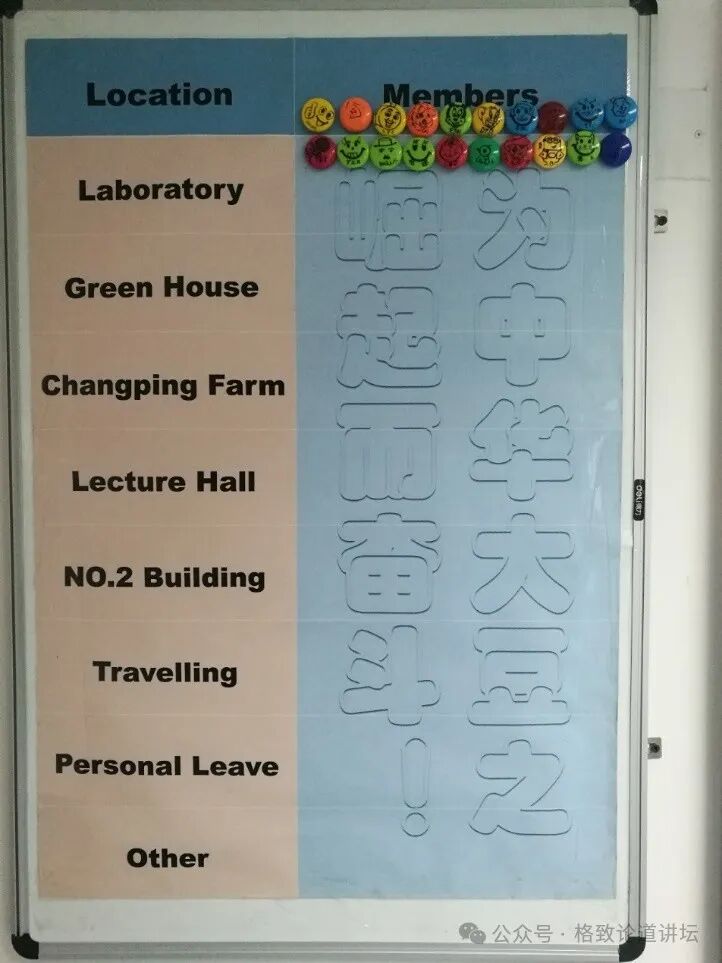 Location
Members
Laboratory
Green House
Changping Farm
Lecture Hall
NO.2 Building
Travelling
Personal Leave
Other
为中华大豆之
崛起而奋斗！
deli得力
公众号 · 格致论道讲坛